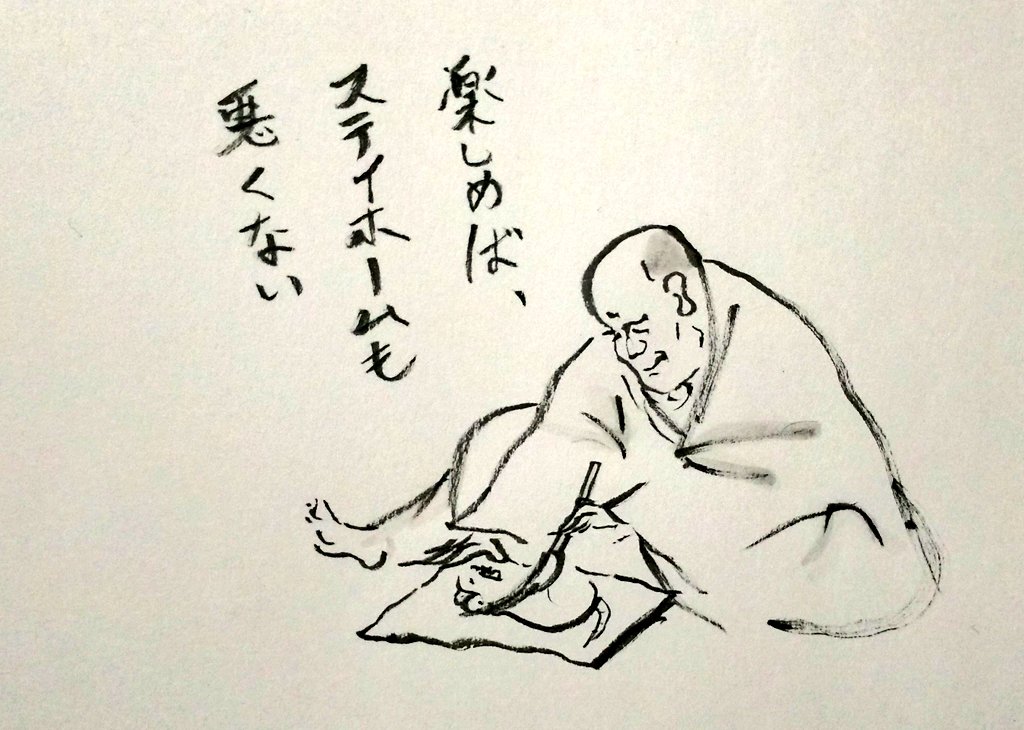 楽しめば、
ステイホームも
悪くない